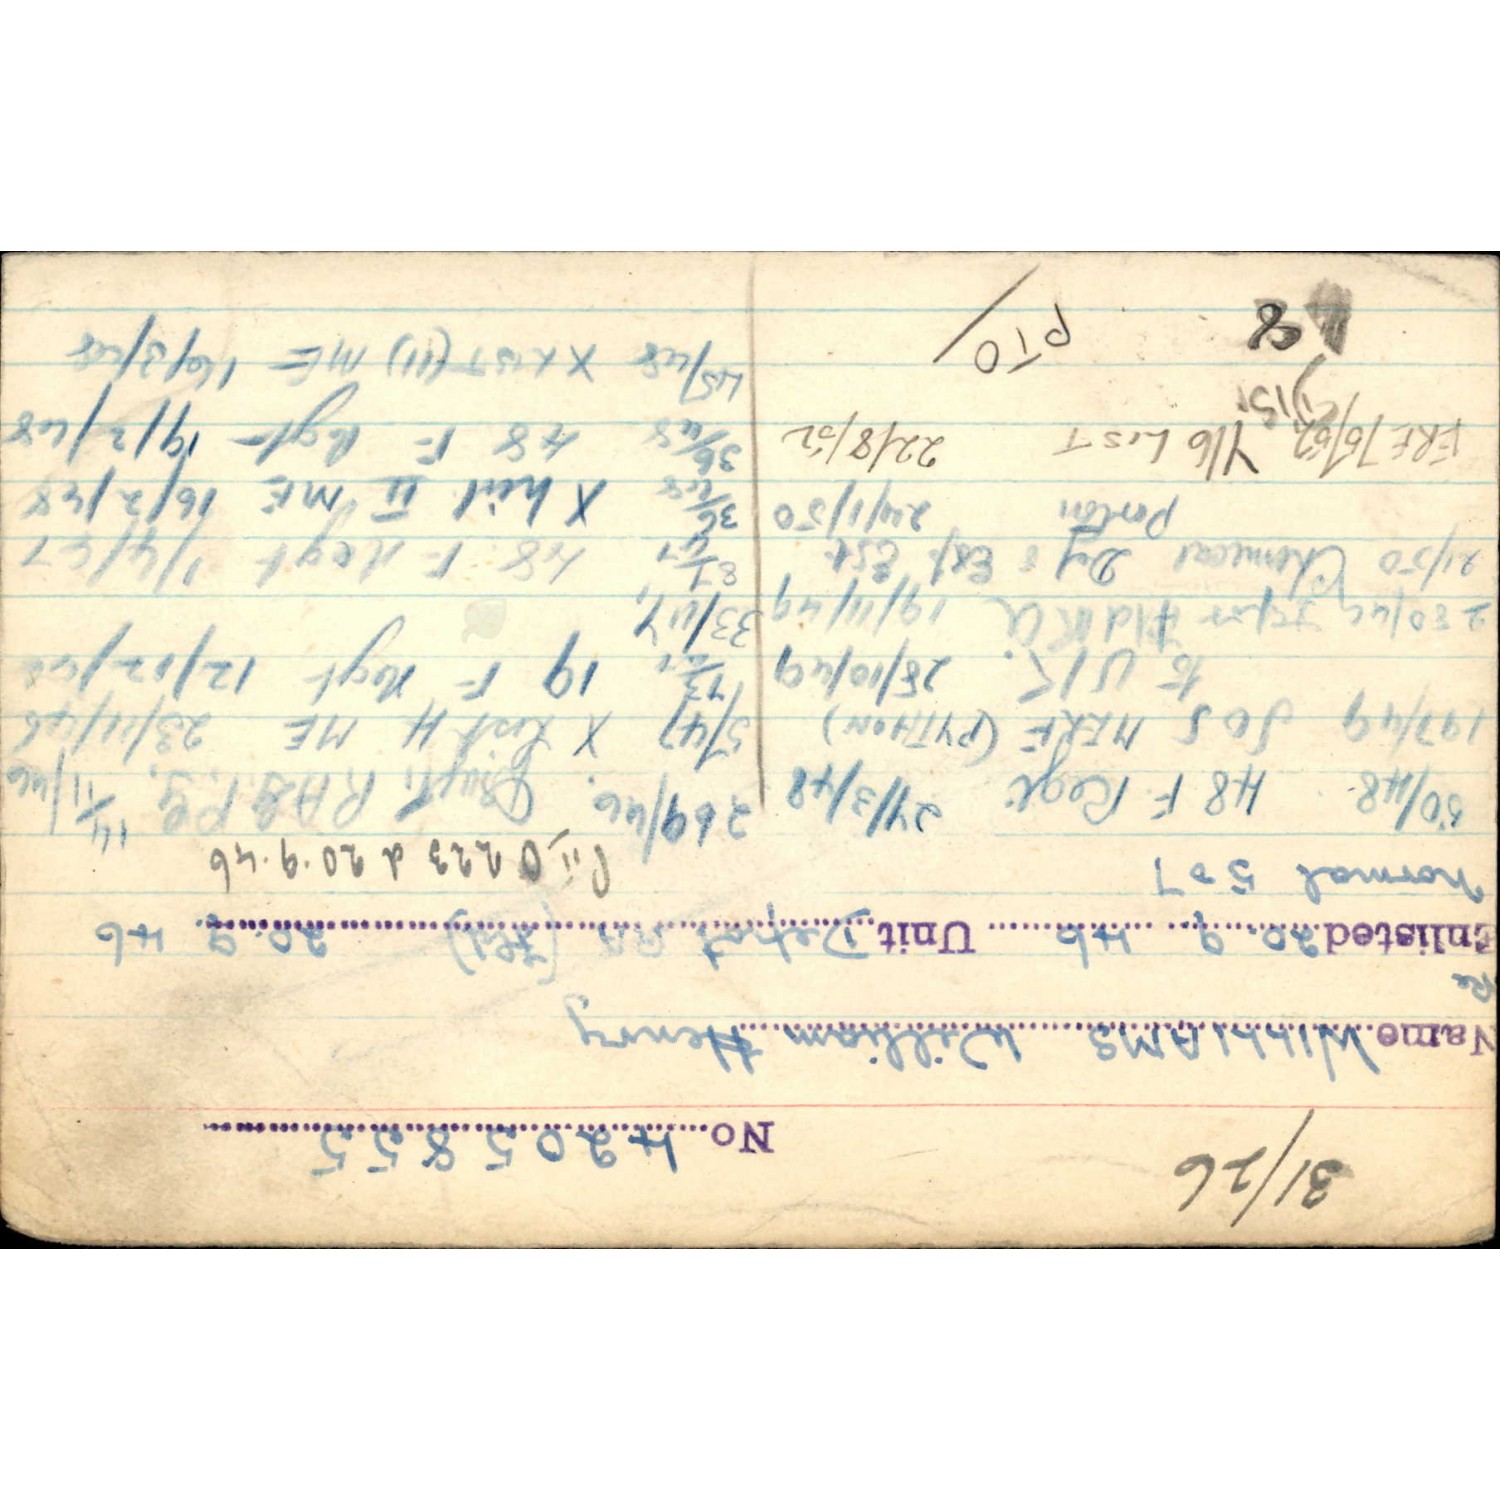 31/26
No. 4205855
Name WILLIAMS William Henry
Re
Enlisted 20.9.46 Unit Depot RA (Fld) 20.9.46
Normal 5
O 223 d 20.9.46
50/48 48 F Regt 24/3/48
197/49 SOS MERE (PYTHON)
to U.K. 28/10/49
Fld RA 19/11/49
21/50 Chemical Def. Exp. Est.
Porton 24/1/50
FRE 76/52 Y/6 LIST 22/8/52
PTO
8
269/46 14/11/46
5/47 X List H ME 23/11/46
19 F Regt 12/12/46
33/47
87/47 48 F Regt 1/4/47
36/48 X List II ME 16/2/48
36/48 48 F Regt 19/2/48
45/48 X LIST (II) ME 16/3/48